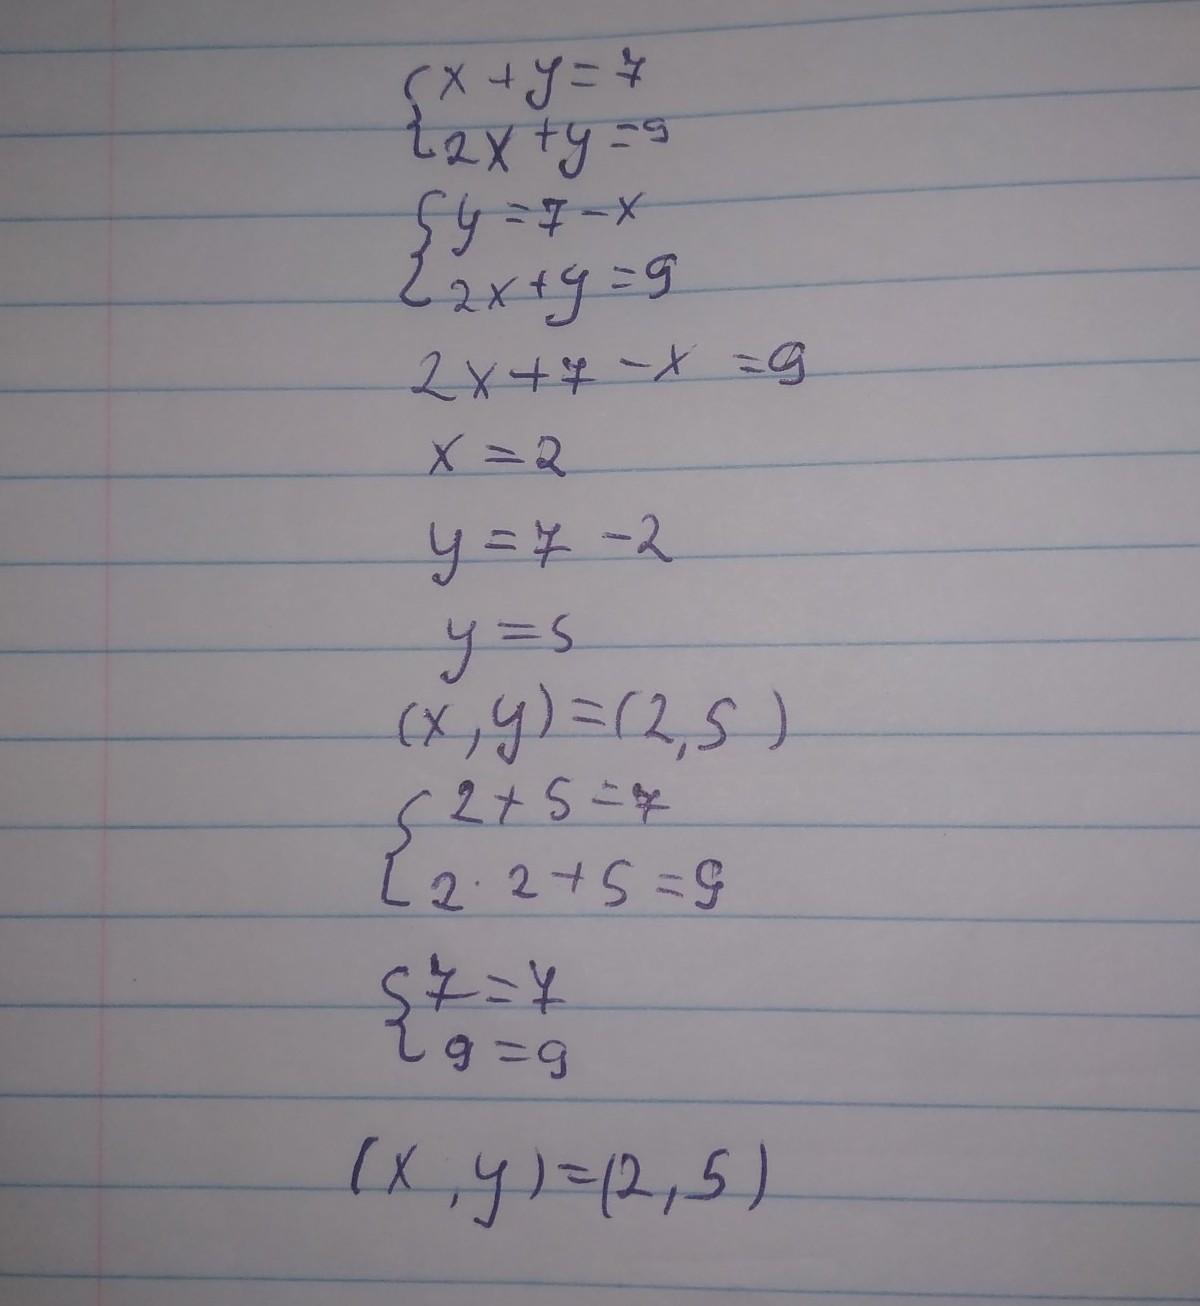 {x + y = 7
2x + y = 9
{y = 7 - x
2x + y = 9
2x + 7 - x = 9
x = 2
y = 7 - 2
y = 5
(x, y) = (2, 5)
{2 + 5 = 7
2 · 2 + 5 = 9
{7 = 7
9 = 9
(x, y) = (2, 5)